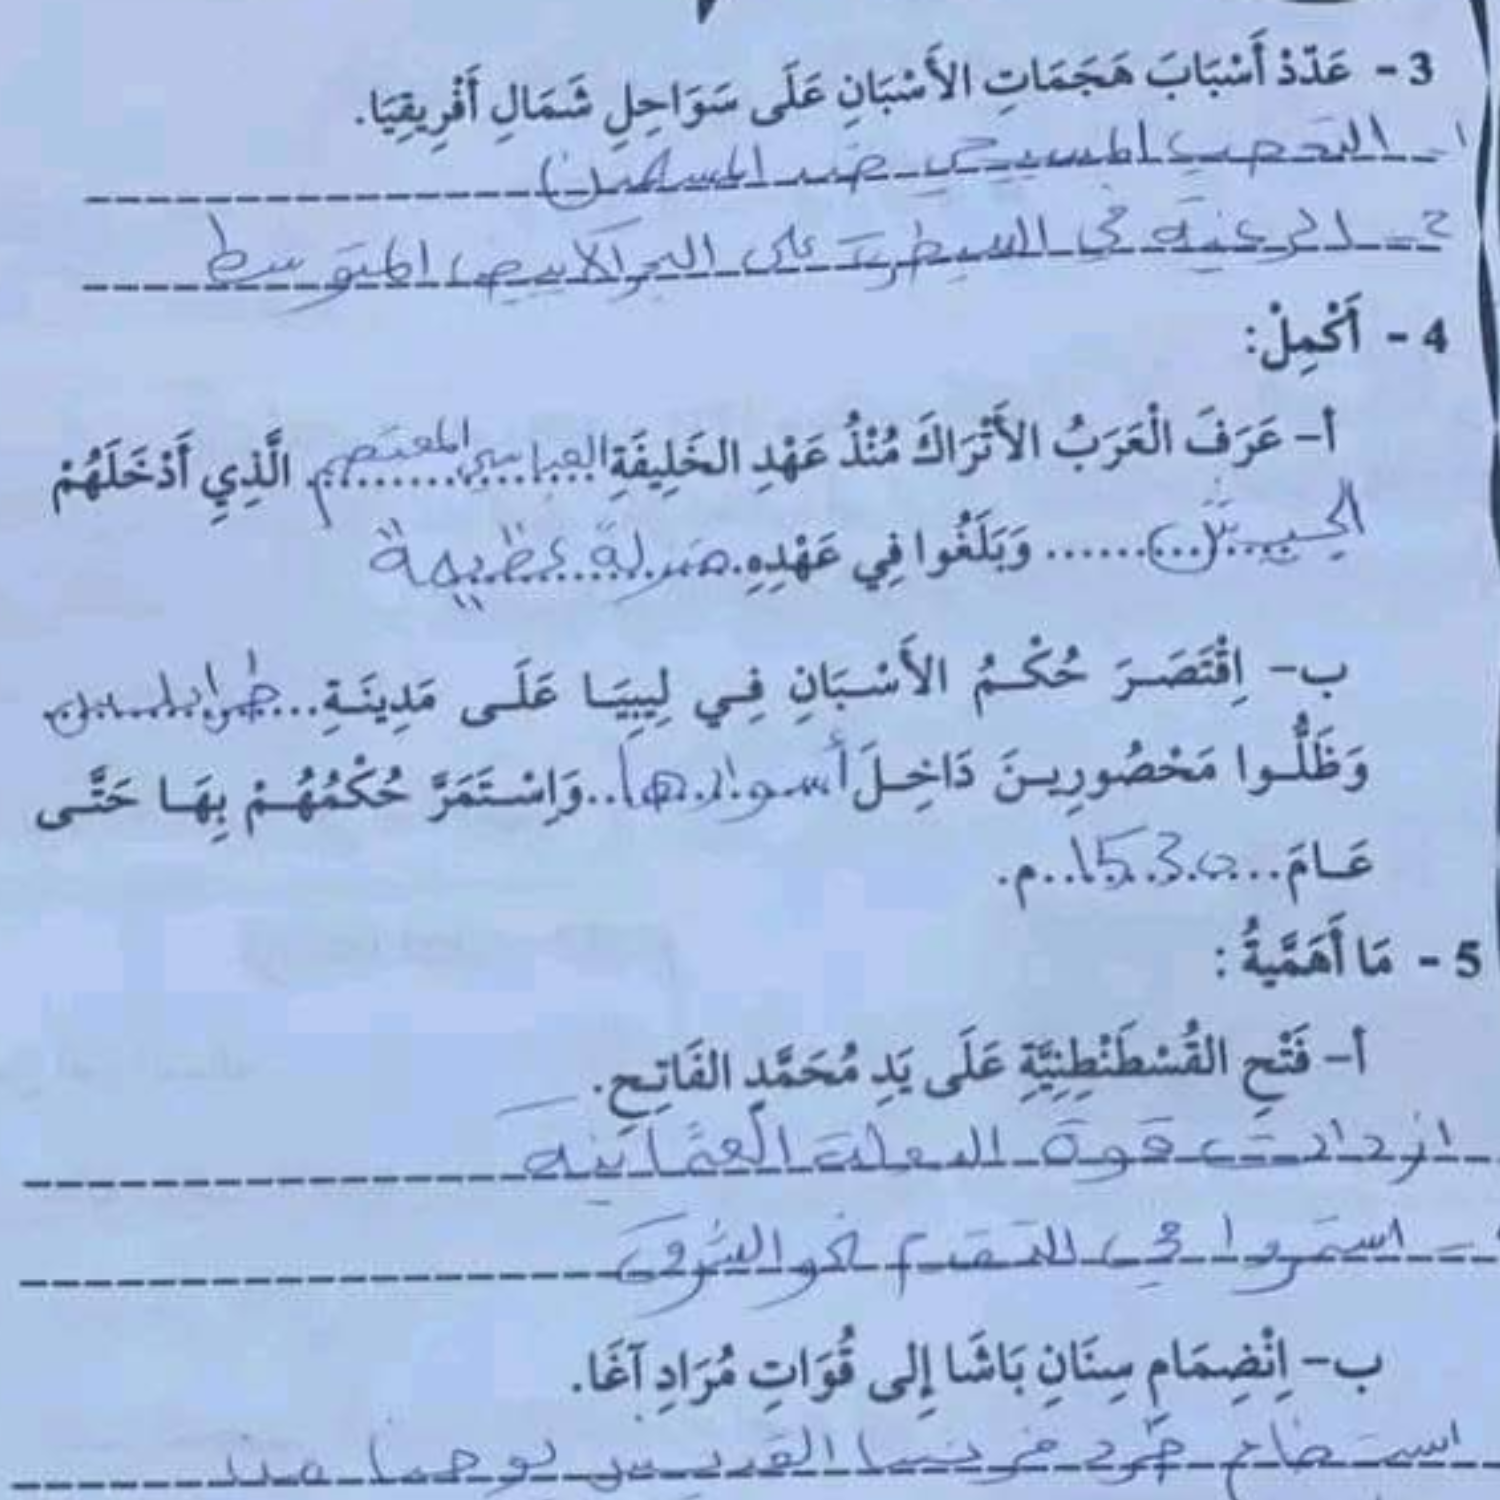 3 - عَدِّدْ أَسْبَابَ هَجَمَاتِ الأَسْبَانِ عَلَى سَوَاحِلِ شَمَالِ أَفْرِيقِيَا.
1- التعصب المسيحي ضد المسلمين
2- الرغبة في السيطرة على البحر الأبيض المتوسط
4 - أَكْمِلْ:
أ- عَرَفَ الْعَرَبُ الأَتْرَاكَ مُنْذُ عَهْدِ الخَلِيفَةِ العباسي المعتصم الَّذِي أَدْخَلَهُمْ
الجيش ...... وَبَلَغُوا فِي عَهْدِهِ منزلة عظيمة
ب- اِقْتَصَرَ حُكْمُ الأَسْبَانِ فِي لِيبِيَا عَلَى مَدِينَةِ... طرابلس
وَظَلُّوا مَحْصُورِينَ دَاخِلَ أسوارها.. وَاِسْتَمَرَّ حُكْمُهُمْ بِهَا حَتَّى
عَامَ...1530..م.
5 - مَا أَهَمَّيةُ :
أ- فَتْحِ القُسْطَنْطِنِيَّةِ عَلَى يَدِ مُحَمَّدٍ الفَاتِحِ.
ازدادت قوة الدولة العثمانية
- استمروا في التقدم نحو الشرق
ب- اِنْضِمَامِ سِنَانِ بَاشَا إِلى قُوَاتِ مُرَادِ آغَا.
استطاع طرد فرسان القديس يوحنا